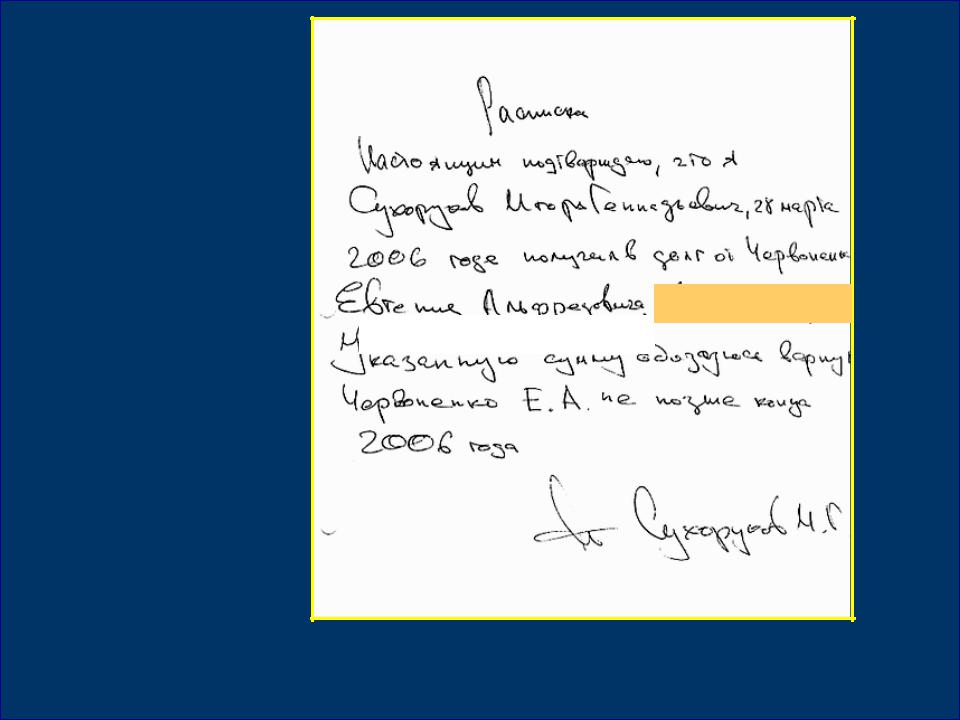 Расписка
Настоящим подтверждаю, что я
Сухоруков Игорь Геннадьевич, 28 марта
2006 года получил в долг от Червоненк
Евгения Альфредовича
Указанную сумму обязуюсь верну
Червоненко Е.А. не позже конца
2006 года
Сухоруков И.Г.